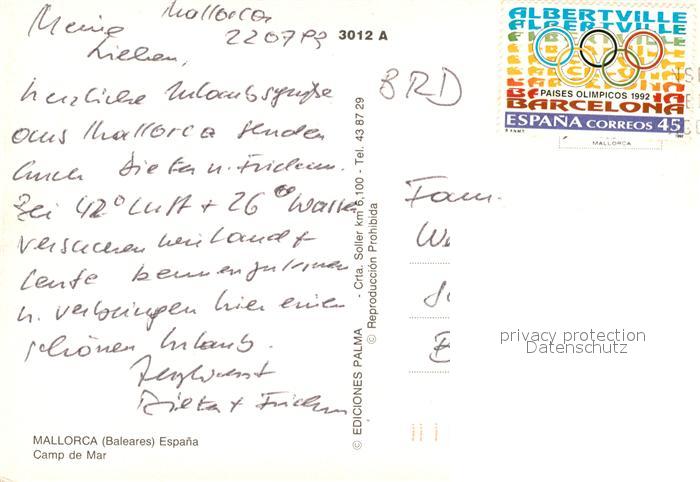 Mallorca
Meine
22 07 93
Lieben,
3012 A
herzliche Urlaubsgrüße
aus Mallorca senden
Euch Dieter u.
Bei 42° Luft + 26° Wasser
versuchen wir Land +
Leute kennenzulernen
u. verbringen hier einen
schönen Urlaub.
Dieter +
MALLORCA (Baleares) España
Camp de Mar
© EDICIONES PALMA - Crta. Soller km 6,100 - Tel. 43 87 29
© Reproducción Prohibida
BRD
ALBERTVILLE
ALBERTVILLE
PAISES OLIMPICOS 1992
BARCELONA
ESPAÑA CORREOS 45
MALLORCA
Fam.
privacy protection
Datenschutz